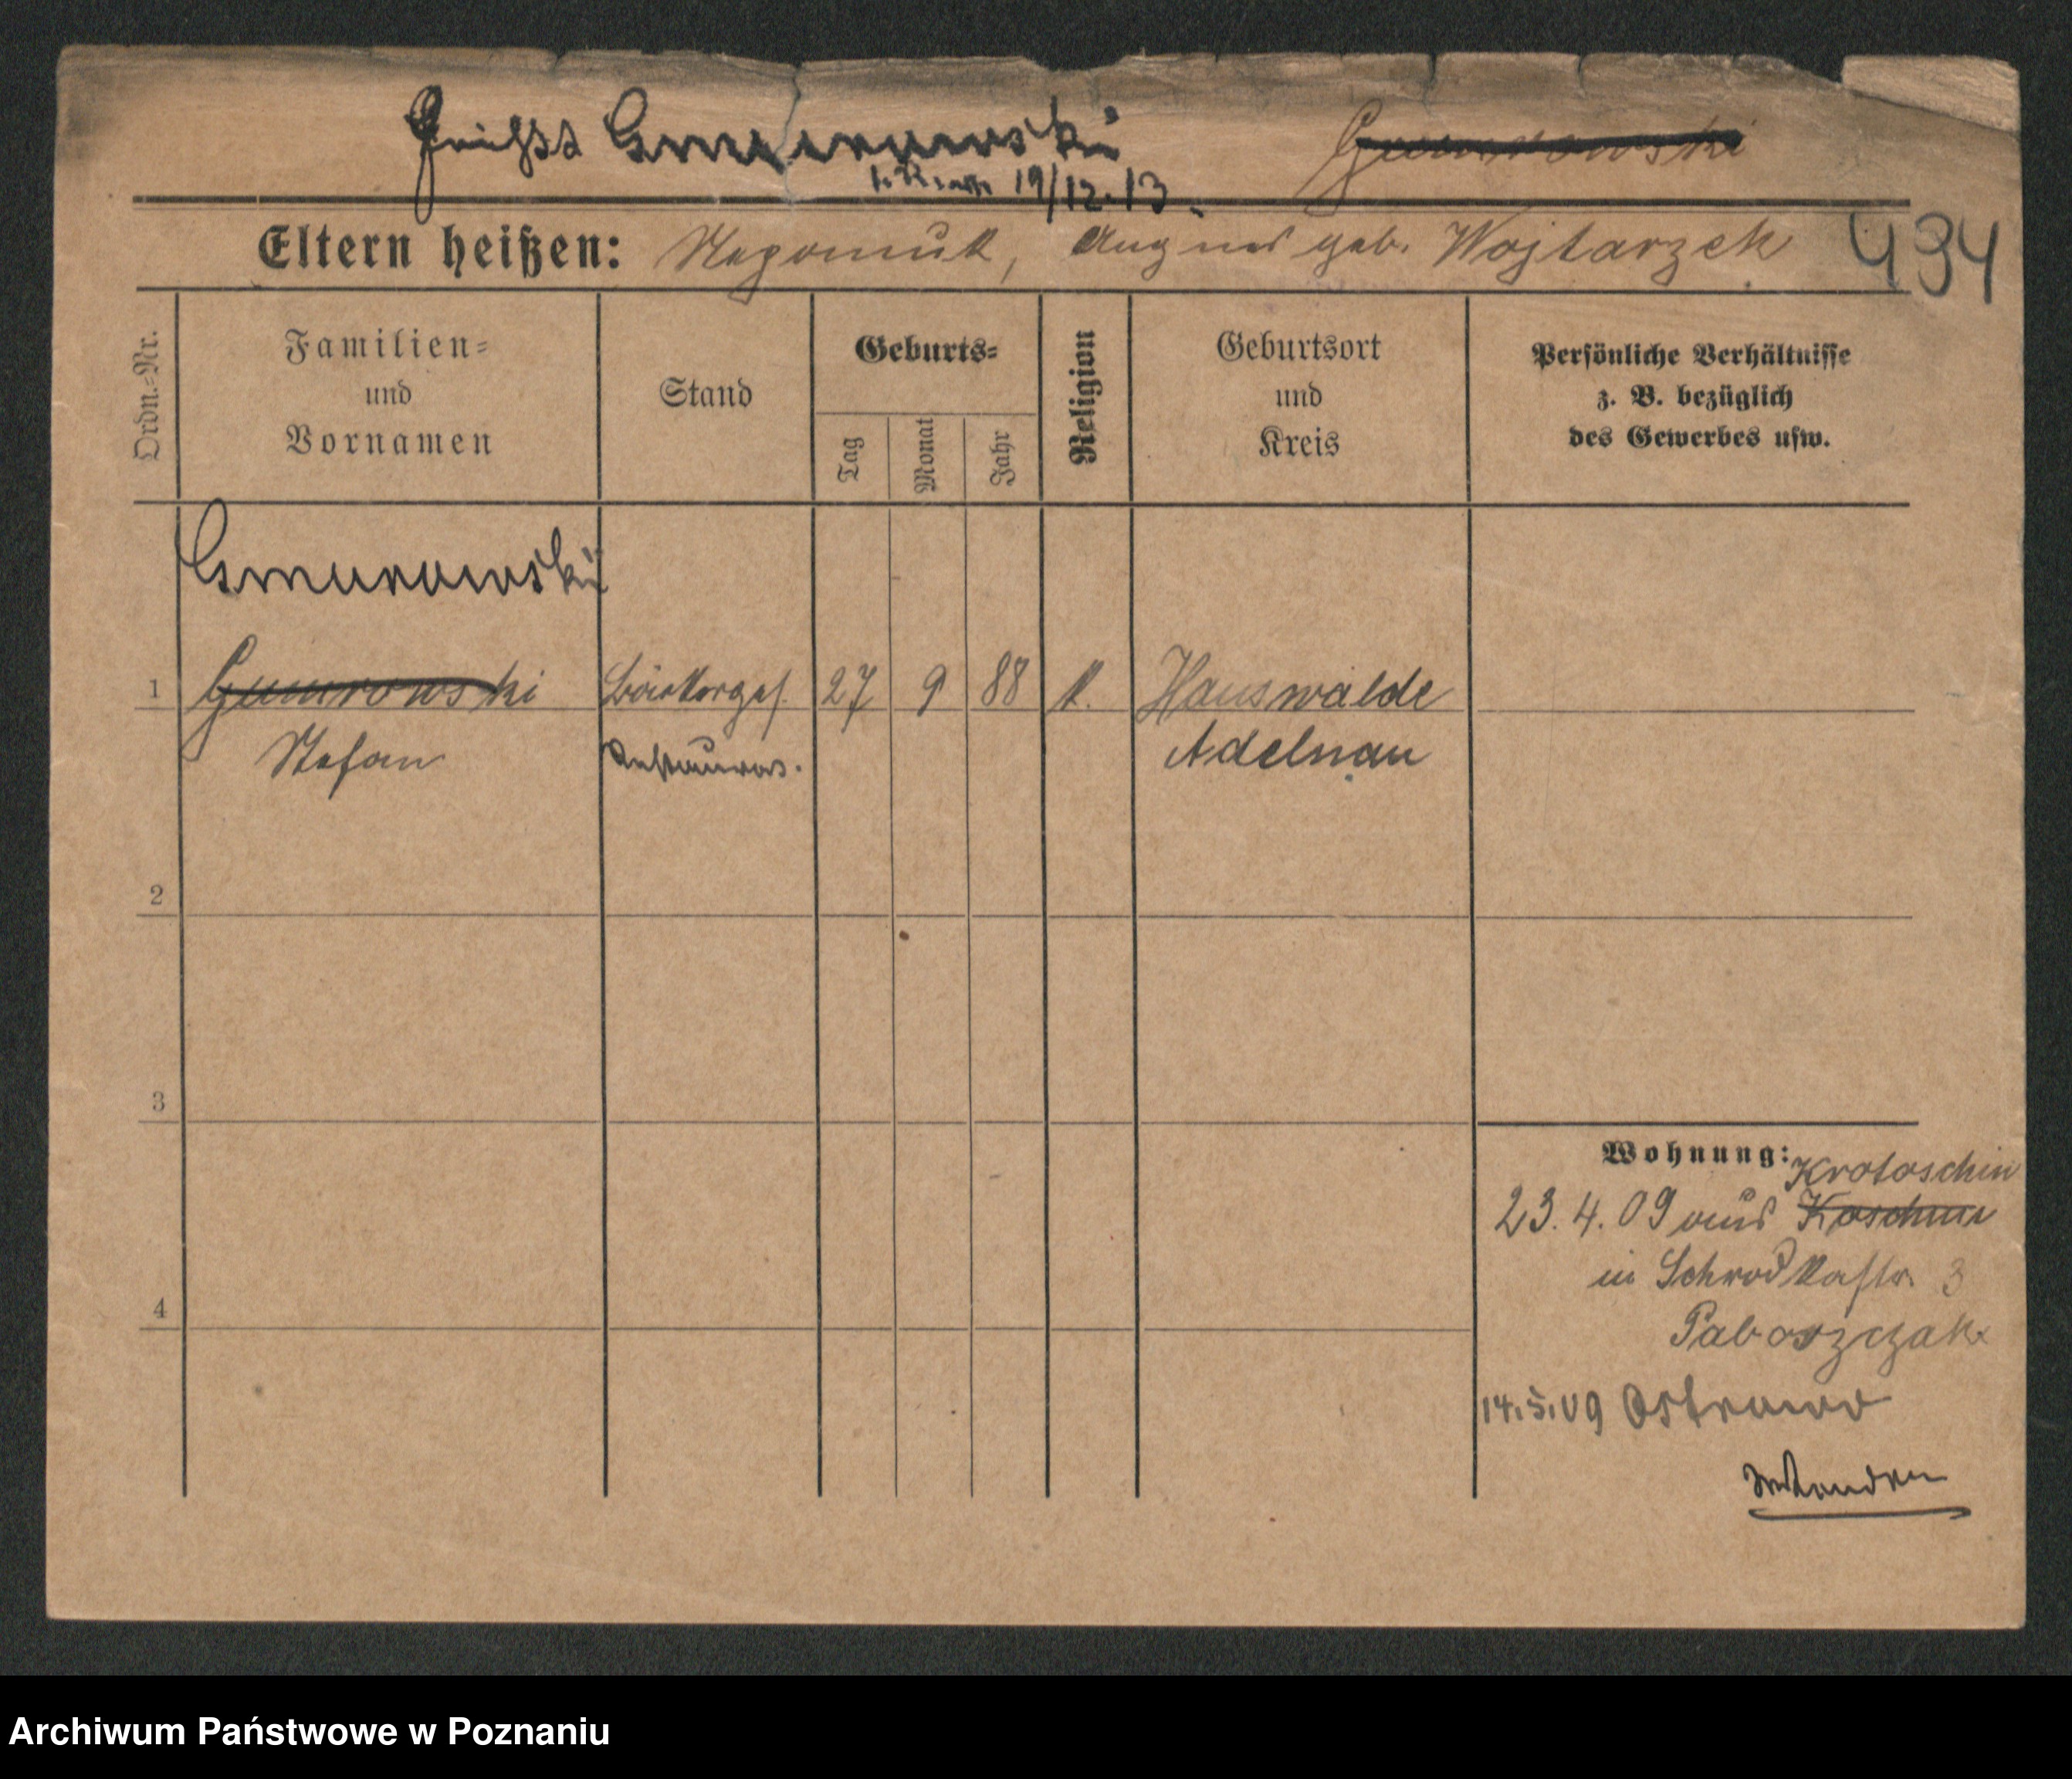 heißt Gmurowski Gumrowski
19/12.13.
Eltern heißen: Nepomuk, Agnes geb. Wojtarzek 494
Ordn.-Nr.
Familien-
und
Vornamen
Stand
Geburts-
Tag
Monat
Jahr
Religion
Geburtsort
und
Kreis
Persönliche Verhältnisse
z. B. bezüglich
des Gewerbes usw.
Gmurowski
1 Gumrowski Bäckerges. 27 9 88 k. Hauswalde
Stefan Adelnau
2
3
4
Wohnung: Krotoschin
23.4.09 aus Koschmin
in Schrodkastr. 3
14.5.09 Ostrowo
Wenden
Archiwum Państwowe w Poznaniu